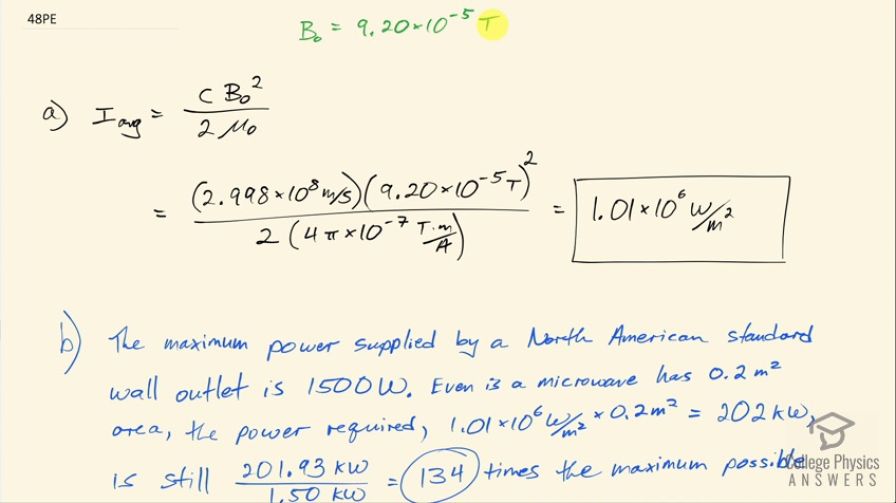 48PE
B₀ = 9.20×10⁻⁵ T
a) I avg = c B₀² / 2 μ₀
= (2.998×10⁸ m/s)(9.20×10⁻⁵ T)² / 2 (4π×10⁻⁷ T·m/A) = 1.01×10⁶ W/m²
b) The maximum power supplied by a North American standard
wall outlet is 1500W. Even is a microwave has 0.2 m²
area, the power required, 1.01×10⁶ W/m² × 0.2m² = 202 kW,
is still 201.93 kW / 1.50 kW = 134 times the maximum possible
College Physics
ANSWERS